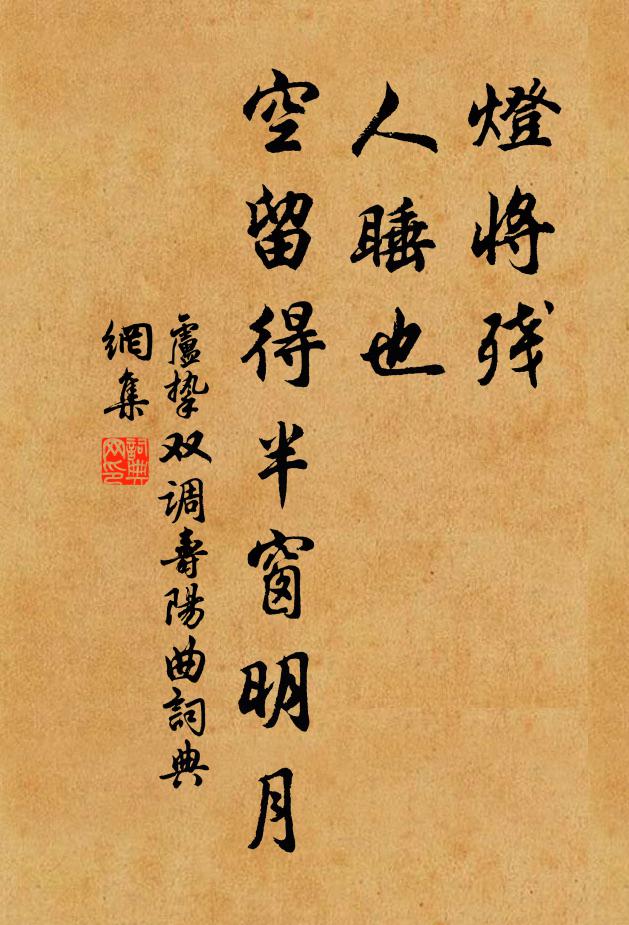 燈將殘
人睡也
空留得半窗明月
盧挚双调壽陽曲詞典
網集
詞典网印